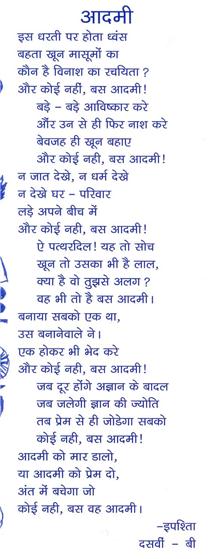 आदमी
इस धरती पर होता ध्वंस
बहता खून मासूमों का
कौन है विनाश का रचयिता ?
और कोई नहीं, बस आदमी!
बड़े – बड़े आविष्कार करे
और उन से ही फिर नाश करे
बेवजह ही खून बहाए
और कोई नही, बस आदमी!
न जात देखे, न धर्म देखे
न देखे घर – परिवार
लड़े अपने बीच में
और कोई नही, बस आदमी!
ऐ पत्थरदिल! यह तो सोच
खून तो उसका भी है लाल,
क्या है वो तुझसे अलग ?
वह भी तो है बस आदमी।
बनाया सबको एक था,
उस बनानेवाले ने।
एक होकर भी भेद करे
और कोई नही, बस आदमी!
जब दूर होंगे अज्ञान के बादल
जब जलेगी ज्ञान की ज्योति
तब प्रेम से ही जोडेगा सबको
कोई नही, बस आदमी!
आदमी को मार डालो,
या आदमी को प्रेम दो,
अंत में बचेगा जो
कोई नही, बस वह आदमी।
–इपश्तिा
दसवीं – बी